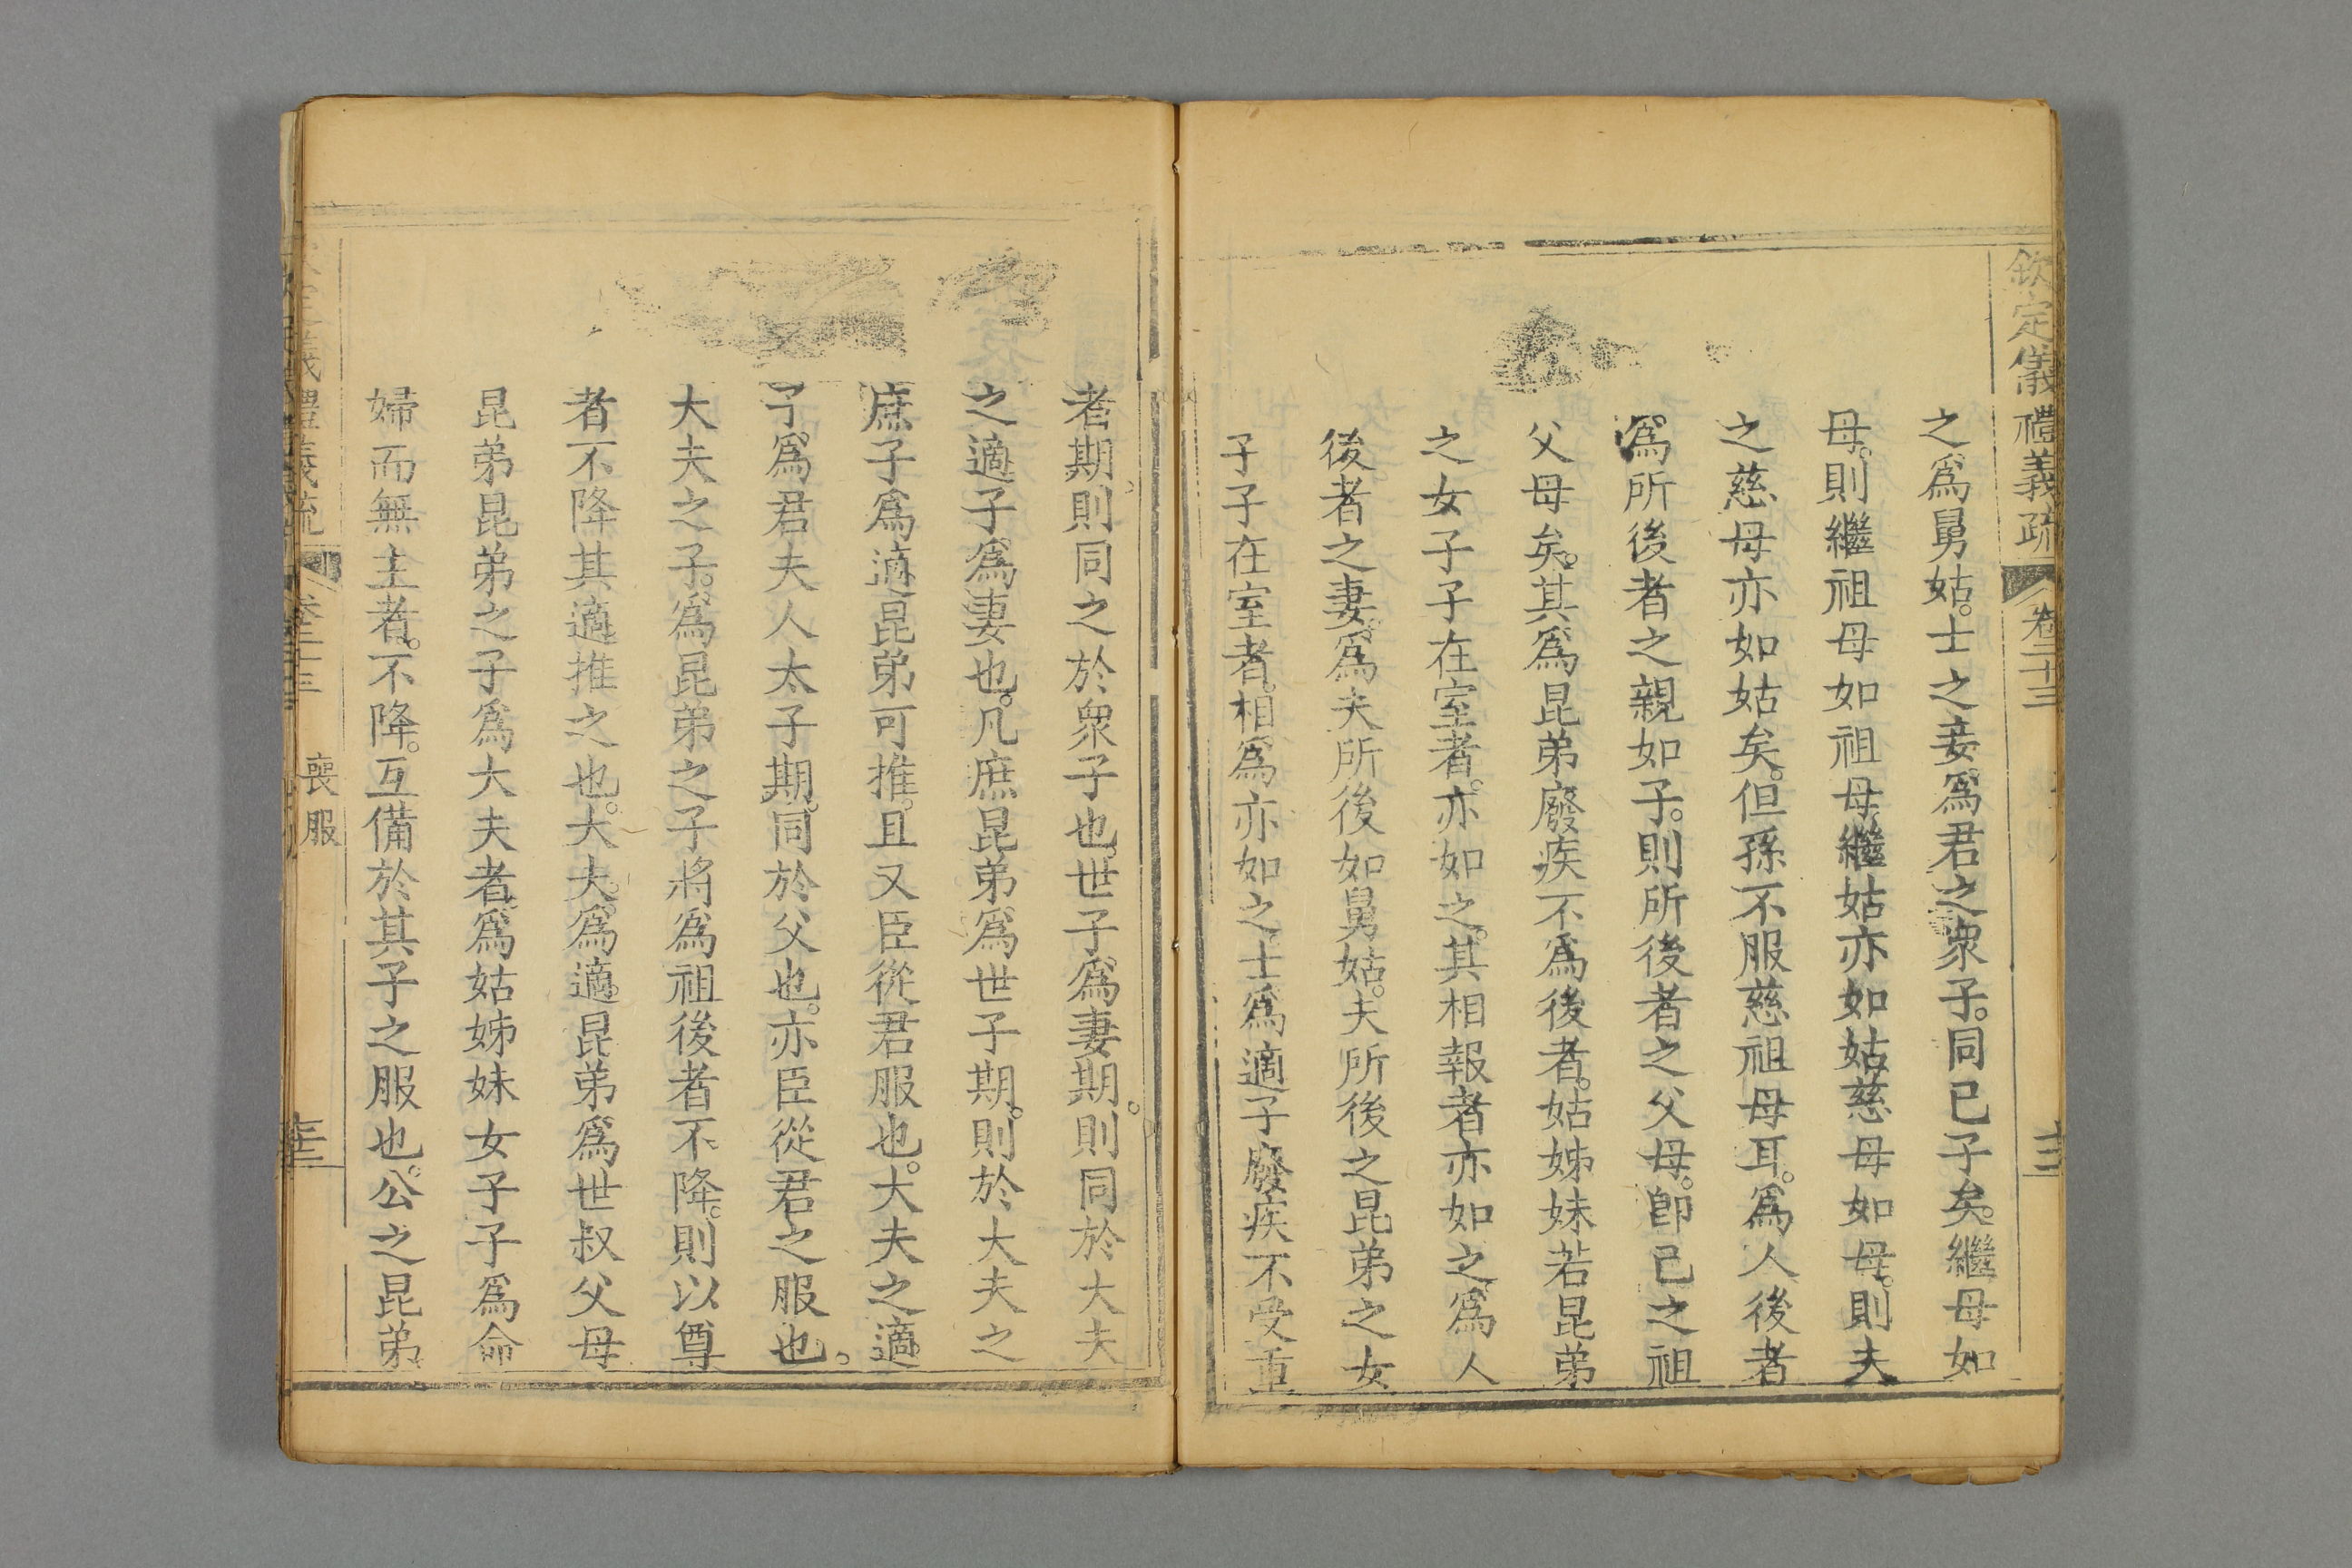 欽定儀禮義疏 卷二十三
之爲舅姑。士之妾。爲君之衆子。同已子矣。繼母如
母。則繼祖母如祖母。繼姑亦如姑。慈母如母。則夫
之慈母亦如姑矣。但孫不服慈祖母耳。爲人後者
爲所後者之親如子。則所後者之父母。卽已之祖
父母矣。其爲昆弟廢疾不爲後者。姑姊妹若昆弟
之女子子在室者。亦如之。其相報者亦如之。爲人
後者之妻。爲夫所後如舅姑。夫所後之昆弟之女
子子在室者。相爲亦如之。士爲適子廢疾不受重
者期。則同之於衆子也。世子爲妻期。則同於大夫
之適子爲妻也。凡庶昆弟爲世子期。則於大夫之
庶子爲適昆弟可推。且又臣從君服也。大夫之適
子。爲君夫人太子期。同於父也。亦臣從君之服也。
大夫之子。爲昆弟之子將爲祖後者不降。則以尊
者不降其適推之也。大夫。爲適昆弟爲世叔父母
昆弟昆弟之子爲大夫者。爲姑姊妹女子子爲命
婦而無主者。不降。互備於其子之服也。公之昆弟
喪服